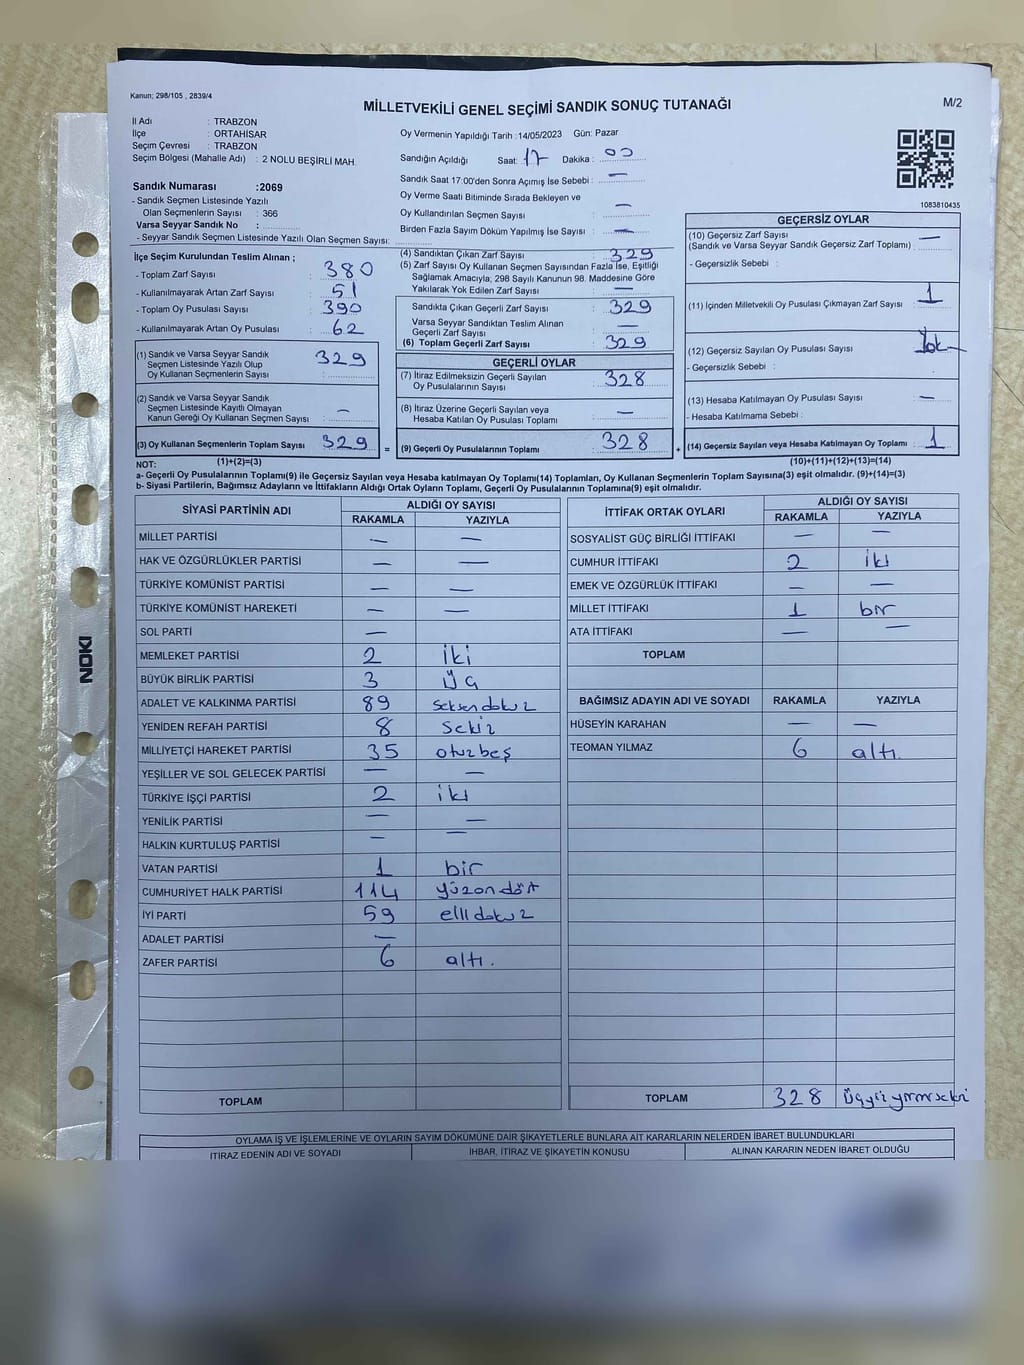 Kanun; 298/105 , 2839/4
MİLLETVEKİLİ GENEL SEÇİMİ SANDIK SONUÇ TUTANAĞI
M/2
İl Adı : TRABZON
İlçe : ORTAHİSAR
Seçim Çevresi : TRABZON
Seçim Bölgesi (Mahalle Adı) : 2 NOLU BEŞİRLİ MAH.
Sandık Numarası :2069
- Sandık Seçmen Listesinde Yazılı
Olan Seçmenlerin Sayısı : 366
Varsa Seyyar Sandık No :
- Seyyar Sandık Seçmen Listesinde Yazılı Olan Seçmen Sayısı:
Oy Vermenin Yapıldığı Tarih :14/05/2023 Gün: Pazar
Sandığın Açıldığı Saat: 17 Dakika : 00
Sandık Saat 17:00'den Sonra Açımış İse Sebebi : —
Oy Verme Saati Bitiminde Sırada Bekleyen ve
Oy Kullandırılan Seçmen Sayısı : —
Birden Fazla Sayım Döküm Yapılmış İse Sayısı : —
1083810435
İlçe Seçim Kurulundan Teslim Alınan ;
- Toplam Zarf Sayısı : 380
- Kullanılmayarak Artan Zarf Sayısı : 51
- Toplam Oy Pusulası Sayısı : 390
- Kullanılmayarak Artan Oy Pusulası : 62
(1) Sandık ve Varsa Seyyar Sandık
Seçmen Listesinde Yazılı Olup
Oy Kullanan Seçmenlerin Sayısı : 329
(2) Sandık ve Varsa Seyyar Sandık
Seçmen Listesinde Kayıtlı Olmayan
Kanun Gereği Oy Kullanan Seçmen Sayısı : —
(3) Oy Kullanan Seçmenlerin Toplam Sayısı : 329
(1)+(2)=(3)
(4) Sandıktan Çıkan Zarf Sayısı : 329
(5) Zarf Sayısı Oy Kullanan Seçmen Sayısından Fazla İse, Eşitliği
Sağlamak Amacıyla; 298 Sayılı Kanunun 98. Maddesine Göre
Yakılarak Yok Edilen Zarf Sayısı : —
Sandıkta Çıkan Geçerli Zarf Sayısı : 329
Varsa Seyyar Sandıktan Teslim Alınan
Geçerli Zarf Sayısı : —
(6) Toplam Geçerli Zarf Sayısı : 329
GEÇERLİ OYLAR
(7) İtiraz Edilmeksizin Geçerli Sayılan
Oy Pusulalarının Sayısı : 328
(8) İtiraz Üzerine Geçerli Sayılan veya
Hesaba Katılan Oy Pusulası Toplamı : —
= (9) Geçerli Oy Pusulalarının Toplamı : 328
GEÇERSİZ OYLAR
(10) Geçersiz Zarf Sayısı : —
(Sandık ve Varsa Seyyar Sandık Geçersiz Zarf Toplamı)
- Geçersizlik Sebebi :
(11) İçinden Milletvekili Oy Pusulası Çıkmayan Zarf Sayısı : 1
(12) Geçersiz Sayılan Oy Pusulası Sayısı : Yok
- Geçersizlik Sebebi :
(13) Hesaba Katılmayan Oy Pusulası Sayısı : —
- Hesaba Katılmama Sebebi :
+ (14) Geçersiz Sayılan veya Hesaba Katılmayan Oy Toplamı : 1
(10)+(11)+(12)+(13)=(14)
NOT:
a- Geçerli Oy Pusulalarının Toplamı(9) ile Geçersiz Sayılan veya Hesaba katılmayan Oy Toplamı(14) Toplamları, Oy Kullanan Seçmenlerin Toplam Sayısına(3) eşit olmalıdır. (9)+(14)=(3)
b- Siyasi Partilerin, Bağımsız Adayların ve İttifakların Aldığı Ortak Oyların Toplamı, Geçerli Oy Pusulalarının Toplamına(9) eşit olmalıdır.
SİYASİ PARTİNİN ADI ALDIĞI OY SAYISI
RAKAMLA YAZIYLA
MİLLET PARTİSİ — —
HAK VE ÖZGÜRLÜKLER PARTİSİ — —
TÜRKİYE KOMÜNİST PARTİSİ — —
TÜRKİYE KOMÜNİST HAREKETİ — —
SOL PARTİ —
MEMLEKET PARTİSİ 2 iki
BÜYÜK BİRLİK PARTİSİ 3 üç
ADALET VE KALKINMA PARTİSİ 89 seksendokuz
YENİDEN REFAH PARTİSİ 8 sekiz
MİLLİYETÇİ HAREKET PARTİSİ 35 otuzbeş
YEŞİLLER VE SOL GELECEK PARTİSİ — —
TÜRKİYE İŞÇİ PARTİSİ 2 iki
YENİLİK PARTİSİ — —
HALKIN KURTULUŞ PARTİSİ — —
VATAN PARTİSİ 1 bir
CUMHURİYET HALK PARTİSİ 114 yüzondört
İYİ PARTİ 59 ellidokuz
ADALET PARTİSİ —
ZAFER PARTİSİ 6 altı.
TOPLAM
İTTİFAK ORTAK OYLARI ALDIĞI OY SAYISI
RAKAMLA YAZIYLA
SOSYALİST GÜÇ BİRLİĞİ İTTİFAKI — —
CUMHUR İTTİFAKI 2 iki
EMEK VE ÖZGÜRLÜK İTTİFAKI — —
MİLLET İTTİFAKI 1 bir
ATA İTTİFAKI — —
TOPLAM
BAĞIMSIZ ADAYIN ADI VE SOYADI RAKAMLA YAZIYLA
HÜSEYİN KARAHAN — —
TEOMAN YILMAZ 6 altı.
TOPLAM 328 Üçyüzyirmisekiz
OYLAMA İŞ VE İŞLEMLERİNE VE OYLARIN SAYIM DÖKÜMÜNE DAİR ŞİKAYETLERLE BUNLARA AİT KARARLARIN NELERDEN İBARET BULUNDUKLARI
İTİRAZ EDENİN ADI VE SOYADI İHBAR, İTİRAZ VE ŞİKAYETİN KONUSU ALINAN KARARIN NEDEN İBARET OLDUĞU
NOKI